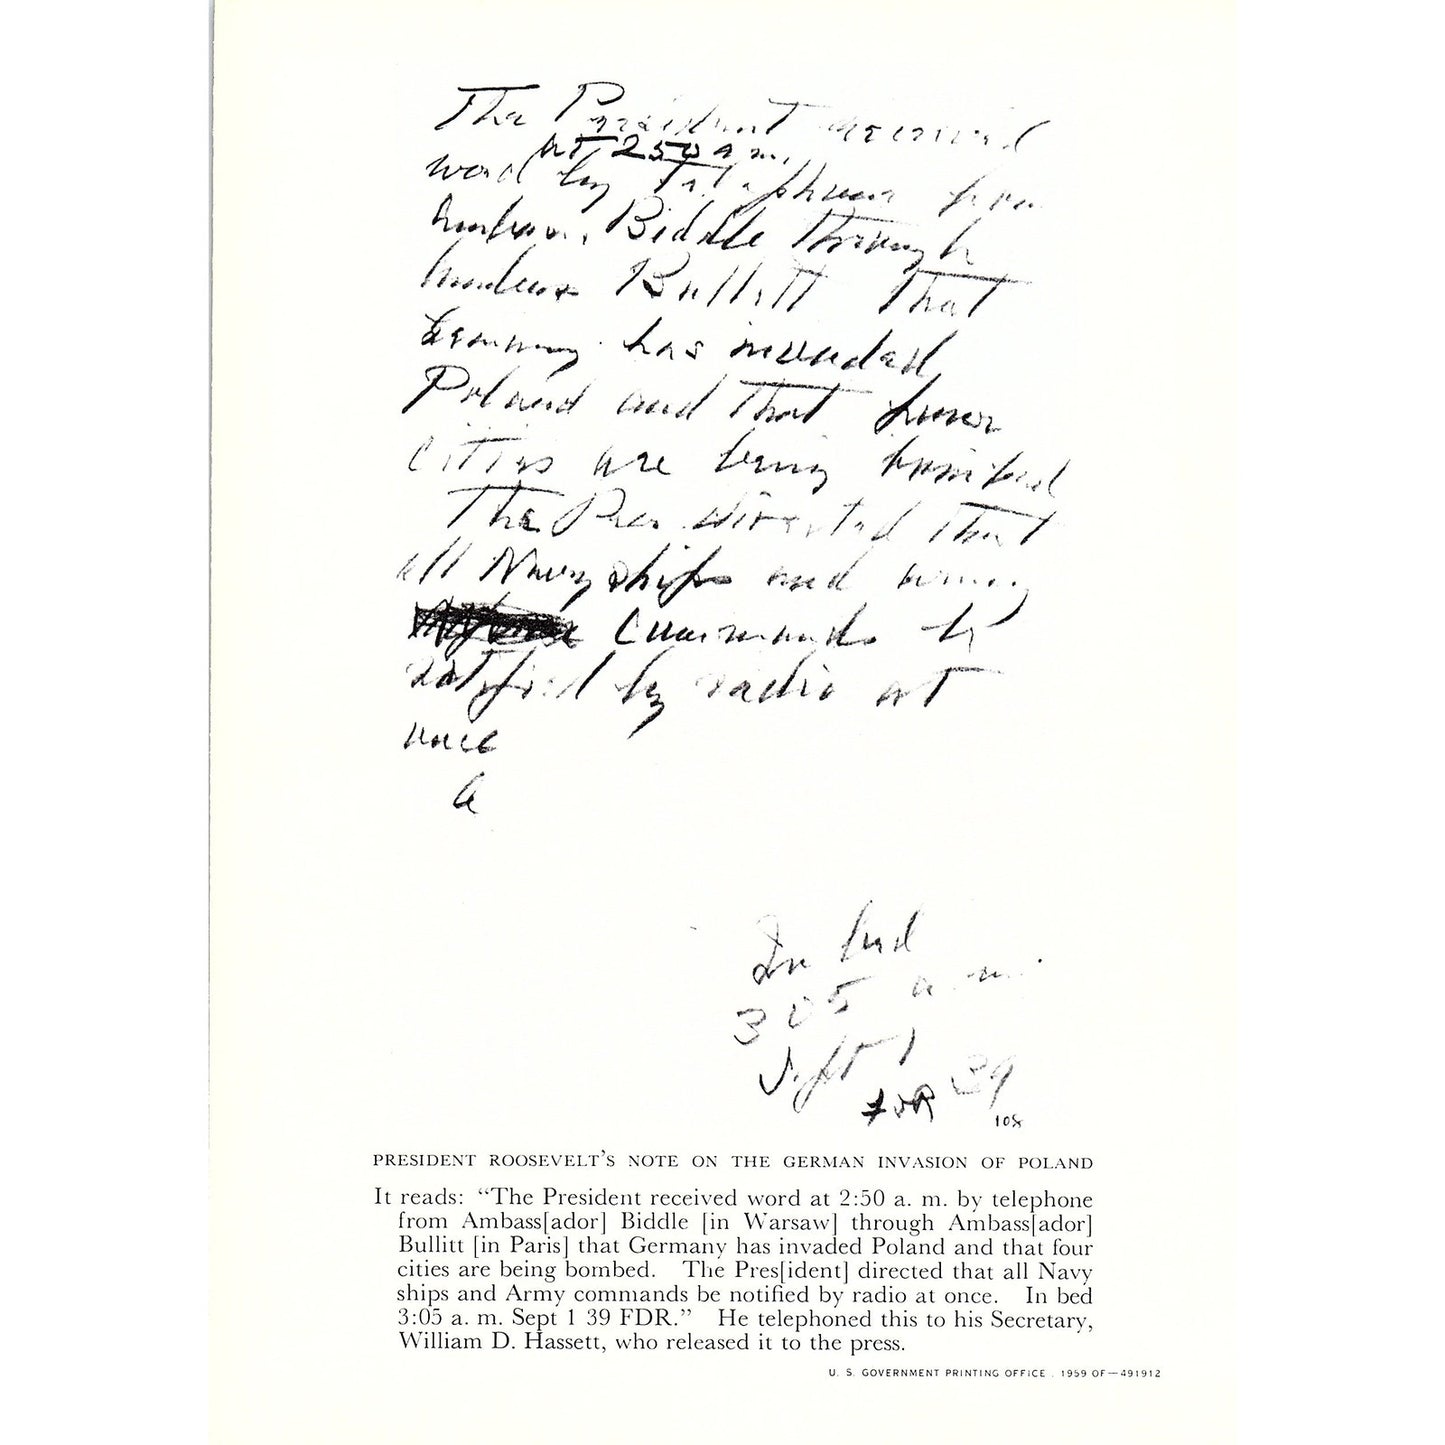 The President received
at 250 a.m.
word by Telephone from
Ambass. Biddle through
Ambass Bullitt that
Germany has invaded
Poland and that four
cities are being bombed
The Pres directed that
all Navy ships and army
commands be
notified by radio at
once
In bed
3 05 a.m.
Sept 1 39
FDR
108
PRESIDENT ROOSEVELT'S NOTE ON THE GERMAN INVASION OF POLAND
It reads: “The President received word at 2:50 a. m. by telephone
from Ambass[ador] Biddle [in Warsaw] through Ambass[ador]
Bullitt [in Paris] that Germany has invaded Poland and that four
cities are being bombed. The Pres[ident] directed that all Navy
ships and Army commands be notified by radio at once. In bed
3:05 a. m. Sept 1 39 FDR.” He telephoned this to his Secretary,
William D. Hassett, who released it to the press.
U. S. GOVERNMENT PRINTING OFFICE . 1959 OF—491912